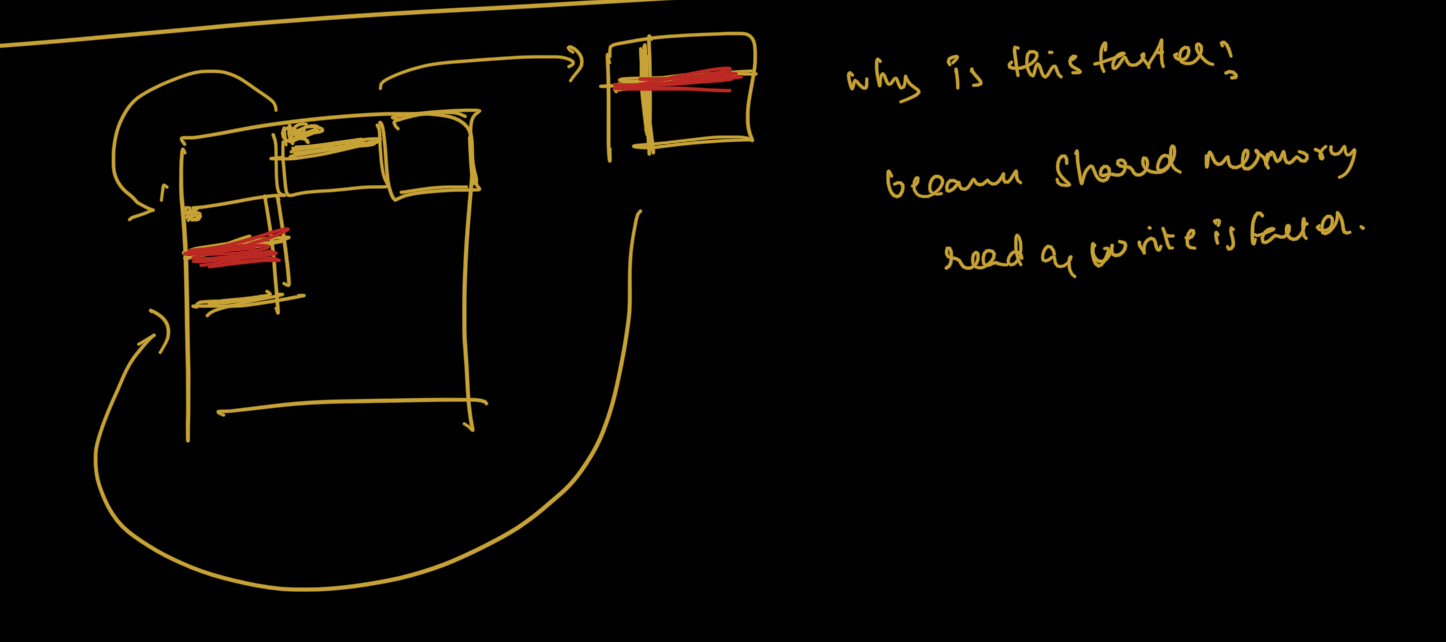 why is this faster?
because shared memory
read & write is faster.